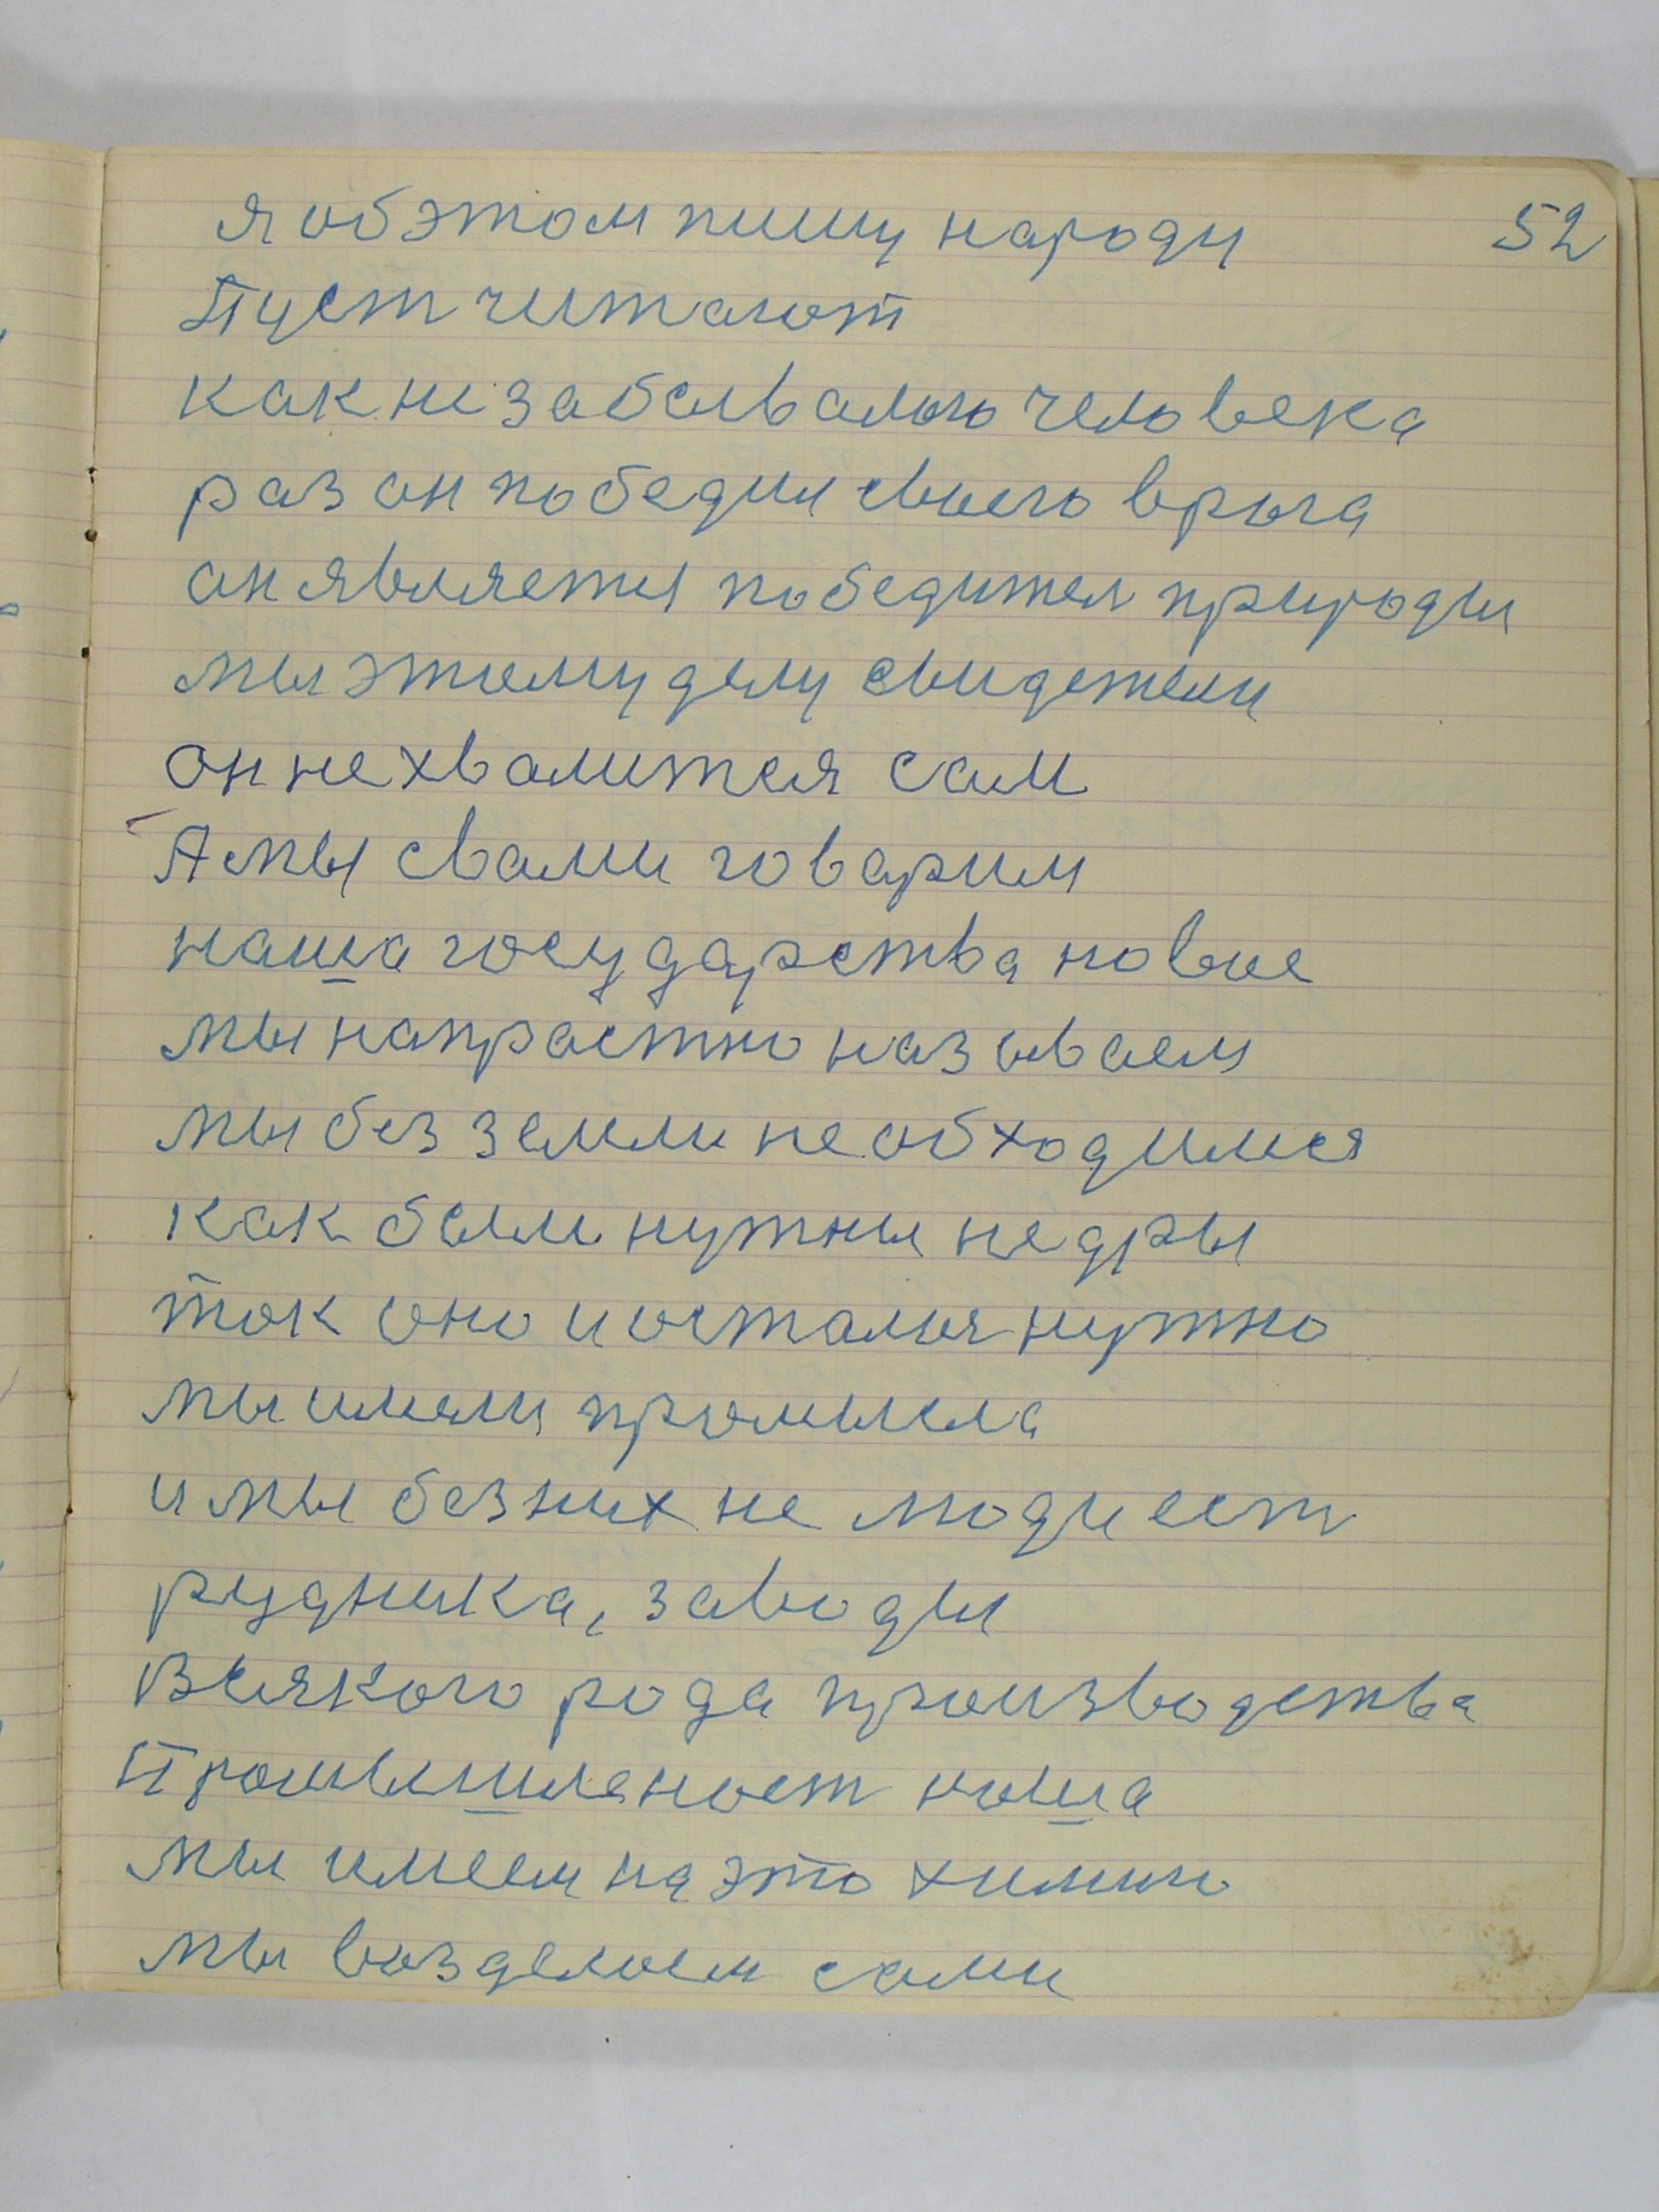 я об этом пишу народу 52
Пуст читают
как незабывалого человека
раз он победил своего врыга
он является победител природы
мы этому делу свидетели
он не хвалится сам
А мы свами говарим
наша государства новое
мы напрастно называем
мы без земли не обходимся
как были нужны недры
так оно и осталось нужно
мы имели промысла
и мы без них не люди ест
рудника, заводы
Всякого рода производства
Промышленост наша
мы имеем на это химию
мы возделоем сами